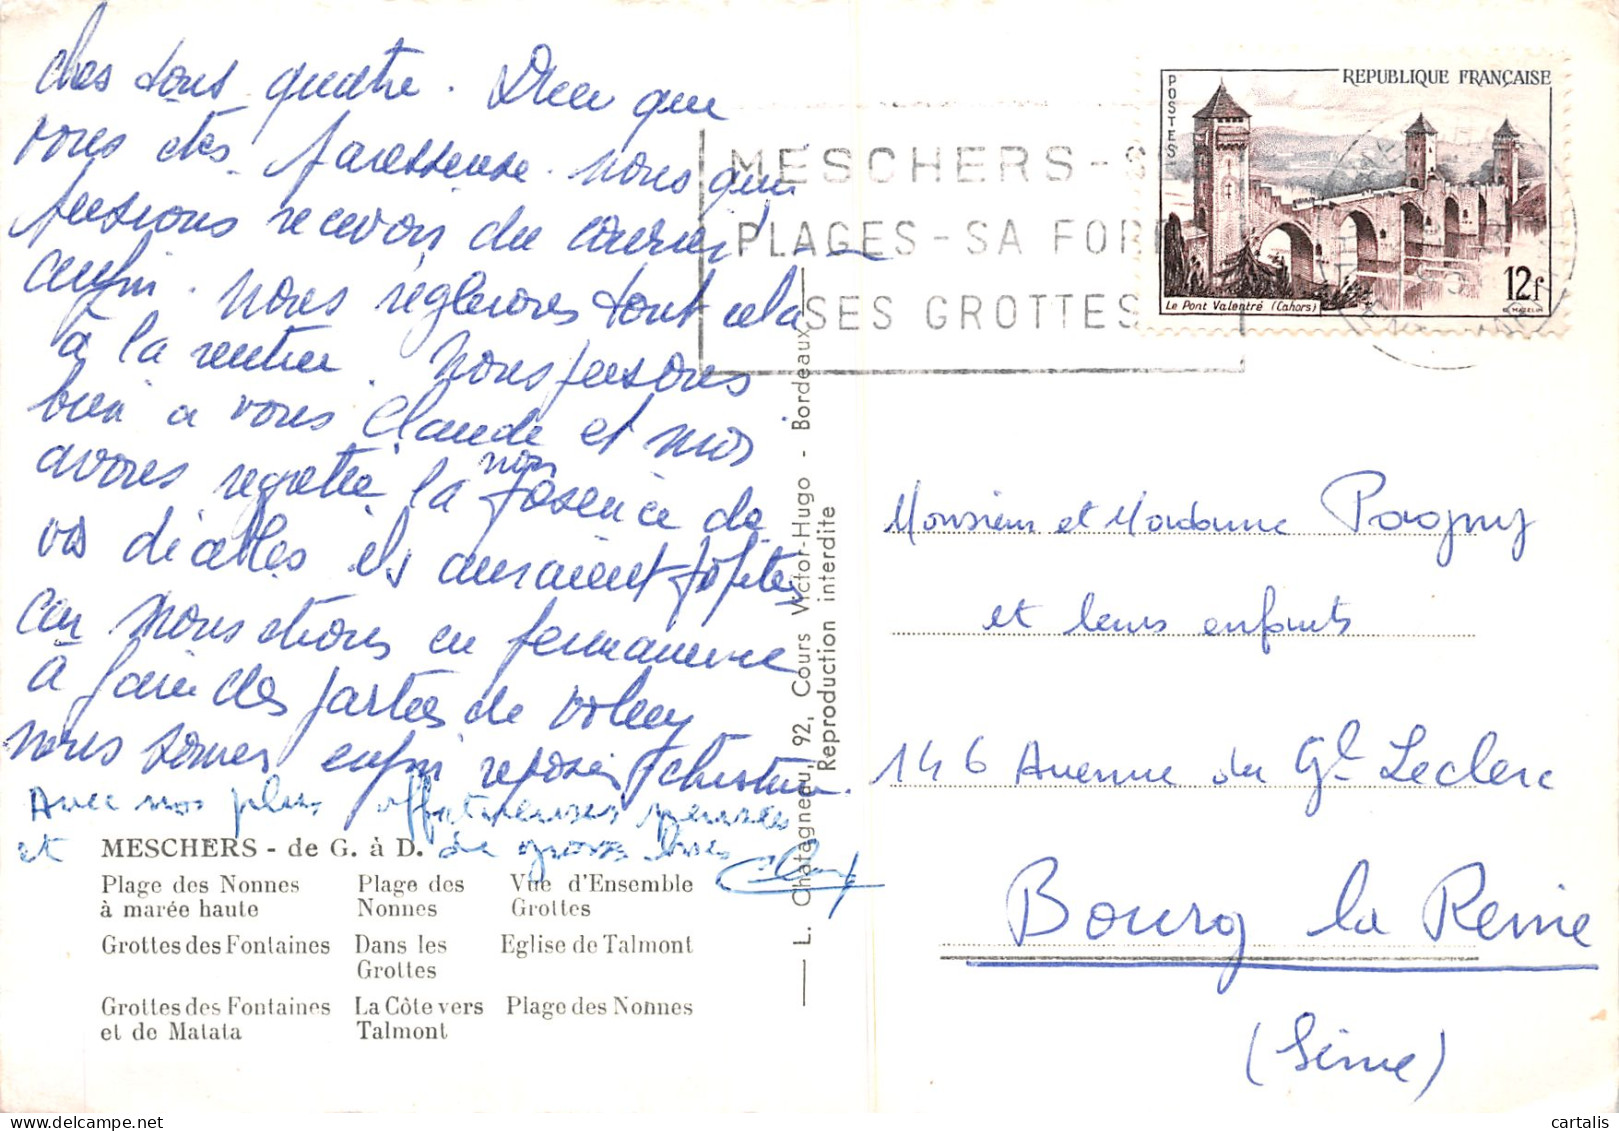 chers tous quatre. Dieu que
vous êtes paresseuse. Nous qui
pensions recevoir du courrier
enfin. Nous règlerons tout cela
à la rentrée. Nous pensons
bien à vous Claude et moi
avons regretté la non présence de
vos diables ils auraient profités
car nous étions en permanence
à faire des parties de volley
nous sommes enfin reposés Christiane.
Avec nos plus affectueuses pensées
et de gros bises
MESCHERS - de G. à D.
Plage des Nonnes
à marée haute
Plage des
Nonnes
Vue d'Ensemble
Grottes
Grottes des Fontaines
Dans les
Grottes
Eglise de Talmont
Grottes des Fontaines
et de Matata
La Côte vers
Talmont
Plage des Nonnes
L. Chatagneau, 92, Cours Victor-Hugo - Bordeaux
Reproduction interdite
MESCHERS - S
PLAGES - SA FOR
SES GROTTES
POSTES
REPUBLIQUE FRANÇAISE
Le Pont Valentré (Cahors)
12f
MAZELIN
Monsieur et Madame Pagny
et leurs enfants
146 Avenue du Gl Leclerc
Bourg la Reine
(Seine)
cartalis
www.delcampe.net